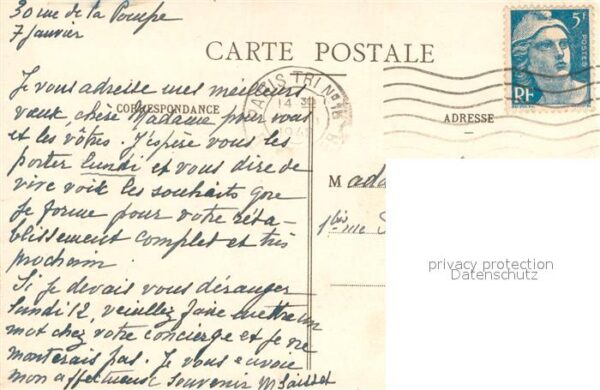 30 rue de la Pompe
7 janvier
CARTE POSTALE
5F
POSTES
RF
PARIS TRI Nº
14 30
CORRESPONDANCE
ADRESSE
Je vous adresse mes meilleurs
vœux, chère Madame pour vous
et les vôtres. J'espère vous les
porter lundi et vous dire de
vive voix les souhaits que
je forme pour votre réta-
blissement complet et très
prochain.
Si je devais vous déranger
lundi 12, veuillez faire mettre un
mot chez votre concierge et je ne
monterais pas. Je vous envoie
mon affectueux souvenir
Mada
1 bis rue
privacy protection
Datenschutz